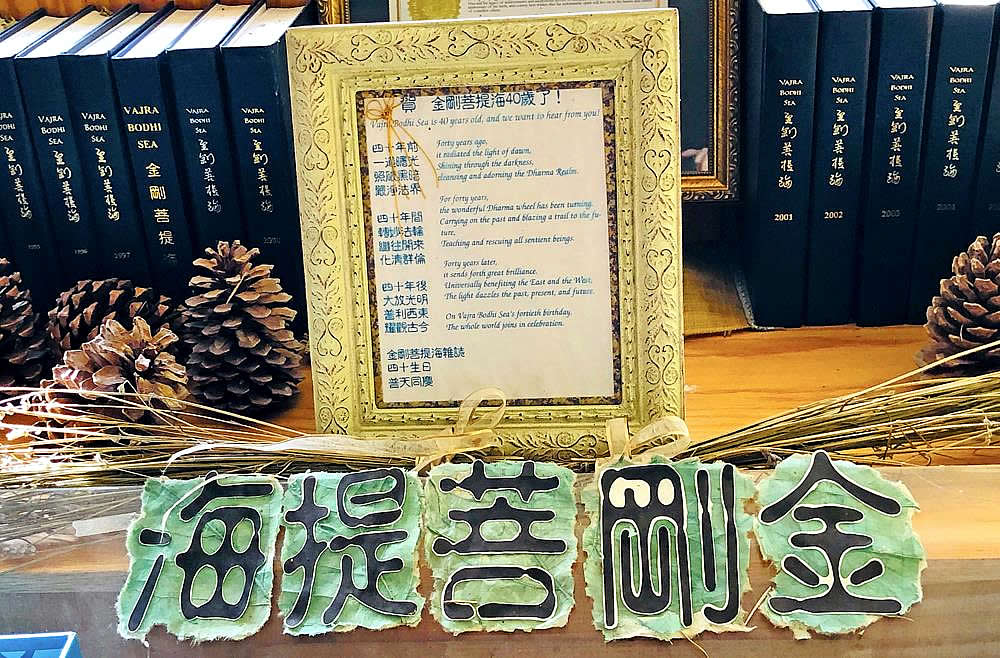 賀 金剛菩提海40歲了！
Vajra Bodhi Sea is 40 years old, and we want to hear from you!
四十年前
一道曙光
照破黑暗
嚴淨法界
Forty years ago,
it radiated the light of dawn,
Shining through the darkness,
cleansing and adorning the Dharma Realm.
四十年間
轉妙法輪
繼往開來
化濟群倫
For forty years,
the wonderful Dharma wheel has been turning.
Carrying on the past and blazing a trail to the fu-
ture,
Teaching and rescuing all sentient beings.
四十年後
大放光明
普利西東
耀觀古今
Forty years later,
it sends forth great brilliance.
Universally benefiting the East and the West,
The light dazzles the past, present, and future.
On Vajra Bodhi Sea's fortieth birthday,
The whole world joins in celebration.
金剛菩提海雜誌
四十生日
普天同慶
VAJRA
BODHI
SEA
金剛菩提海
VAJRA
BODHI
SEA
金剛菩提海
1996
VAJRA
BODHI
SEA
金剛菩提海
1997
VAJRA
BODHI
SEA
金剛菩提
VAJRA
BODHI
SEA
金剛菩提海
VAJRA
BODHI
SEA
金剛菩提海
2000
VAJRA
BODHI
SEA
金剛菩提海
2001
VAJRA
BODHI
SEA
金剛菩提海
2002
VAJRA
BODHI
SEA
金剛菩提海
2003
VAJRA
BODHI
SEA
金剛菩提海
2004
金剛菩提海